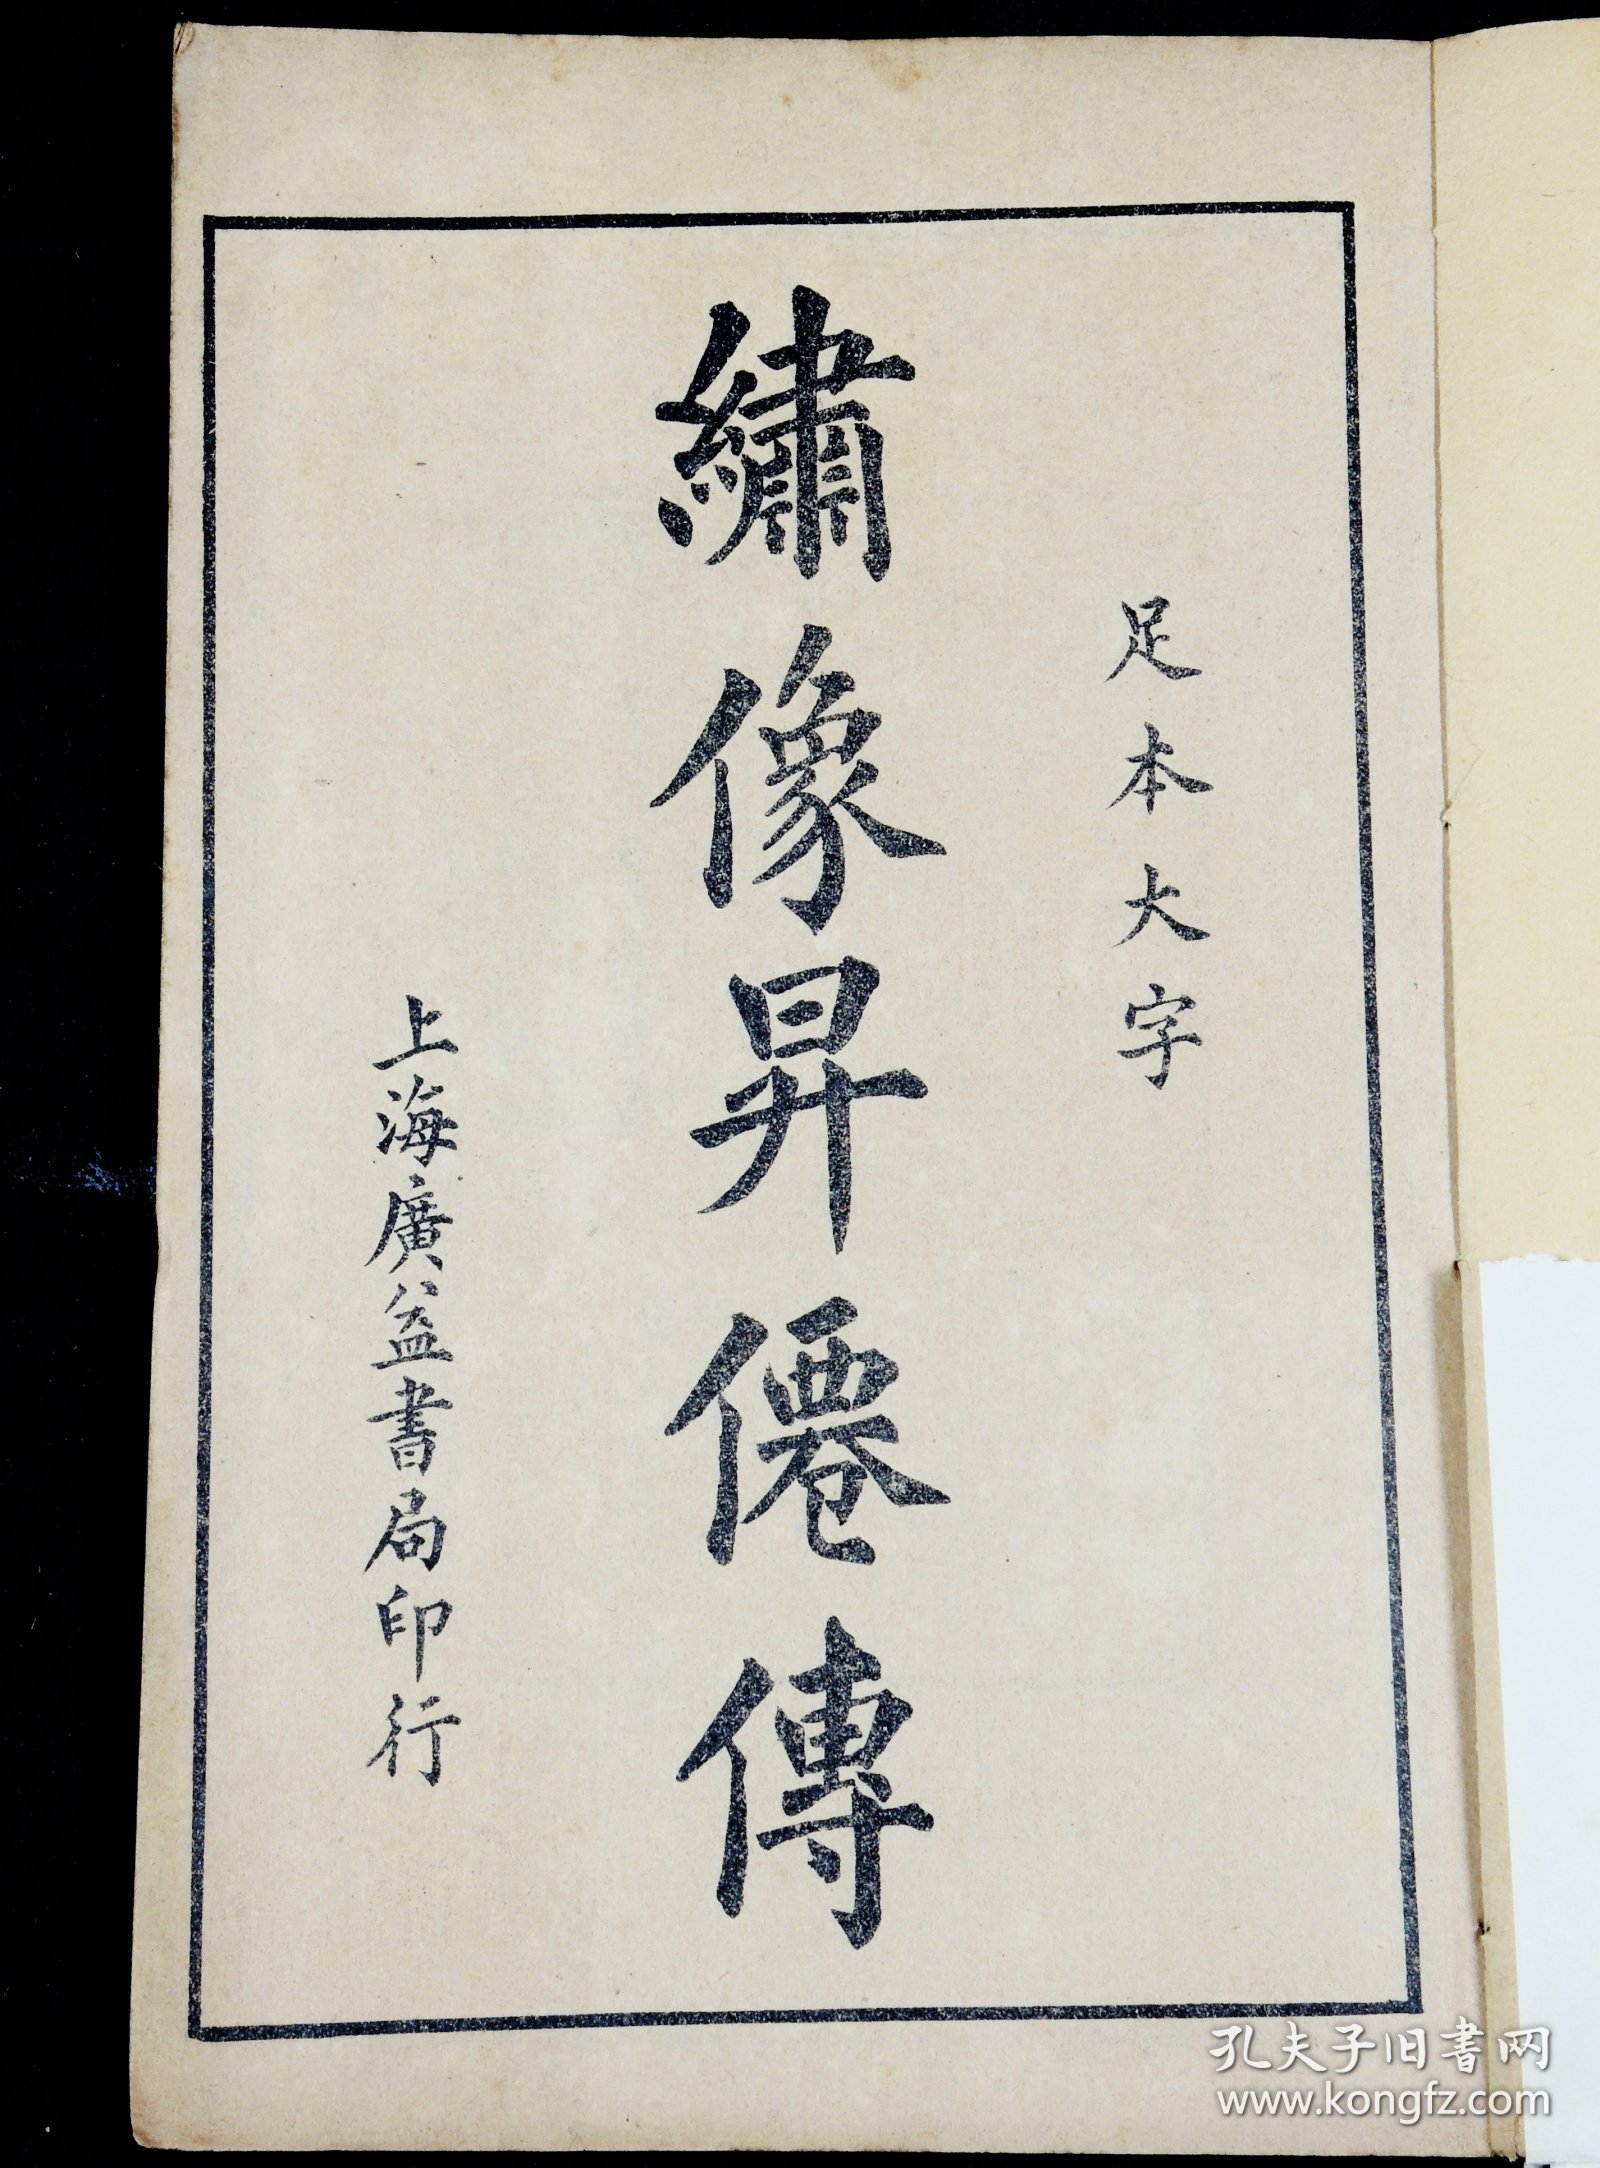 足本大字
繡像昇僊傳
上海廣益書局印行
孔夫子旧书网
www.kongfz.com